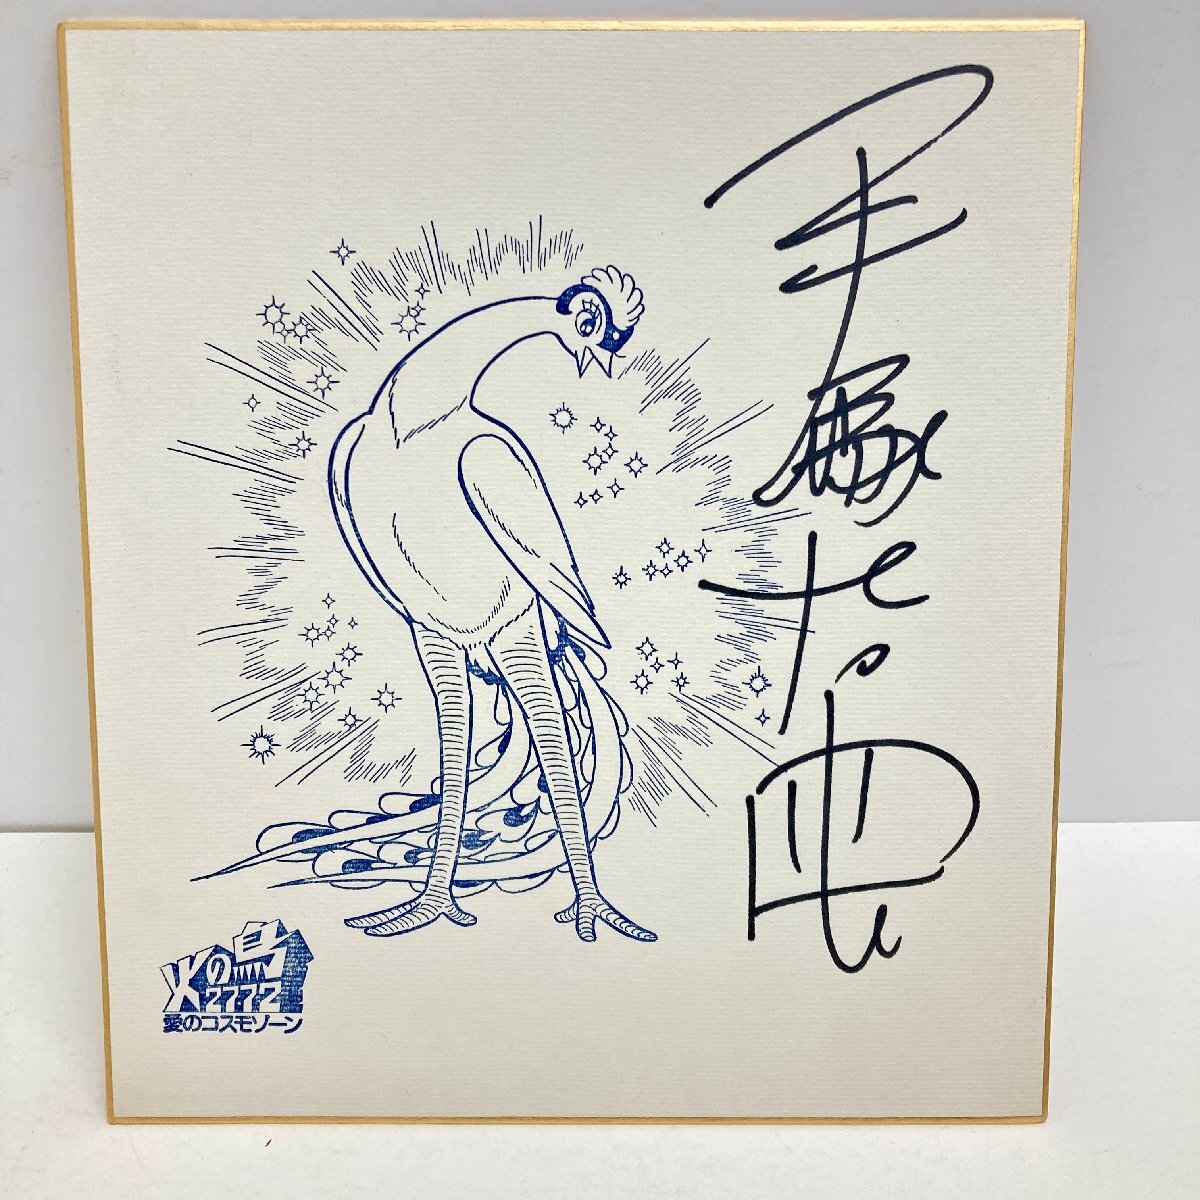 手塚治虫
火の鳥
2772
愛のコスモゾーン